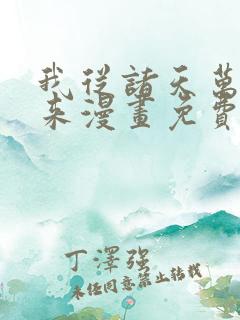 我從諸天萬
來漫畫免費
丁澤強
未经同意禁止转载